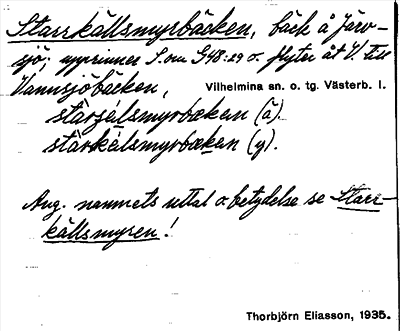 Starrkällsmyrbäcken, bäck å Järv-
sjö; upprinner S. om G48:29 o. flyter åt V. till
Vannsjöbäcken, Vilhelmina sn. o. tg. Västerb. l.
stàrʃélsmyrbæken (ä).
stàrkélsmyrbæken (y).
Ang. namnets uttal o betydelse se Starr-
källsmyren!
Thorbjörn Eliasson, 1935.